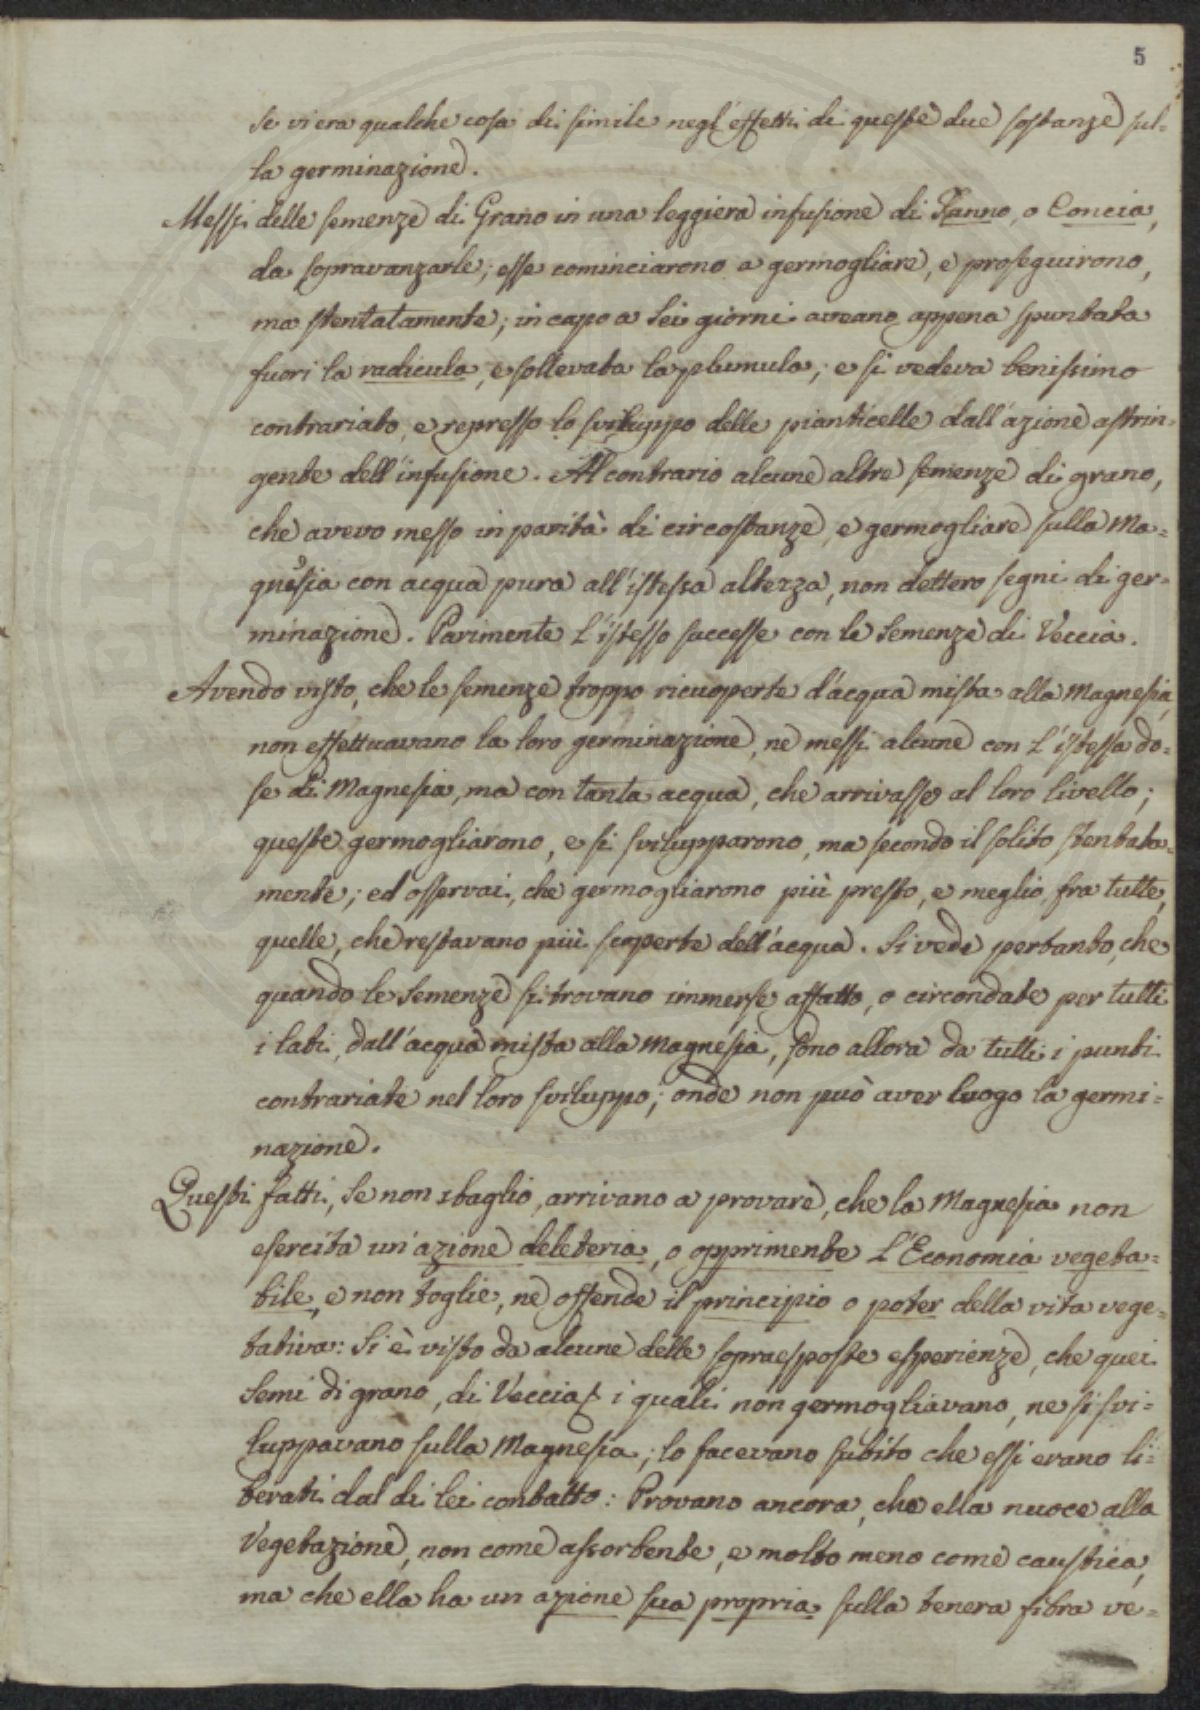 5
se vi era qualche cosa di simile negl'effetti di queste due sostanze sul=
la germinazione.
Messi delle semenze di Grano in una leggiera infusione di Tanno, o Concia,
da sopravanzarle; esse cominciarono a germogliare, e proseguirono,
ma stentatamente; in capo a sei giorni aveano appena spuntata
fuori la radicula, e sollevata la plumula; e si vedeva benissimo
contrariato, e represso lo sviluppo delle pianticelle dall'azione astrin=
gente dell'infusione. Al contrario alcune altre semenze di grano,
che avevo messo in parità di circostanze, e germogliare sulla Ma=
gnesia con acqua pura all'istessa altezza, non dettero segni di ger=
minazione. Parimente l'istesso successe con le semenze di Veccia.
Avendo visto, che le semenze troppo ricuoperte d'acqua mista alla Magnesia,
non effettuavano la loro germinazione, ne messi alcune con l'istessa do=
se di Magnesia, ma con tanta acqua, che arrivasse al loro livello;
queste germogliarono, e si svilupparono, ma secondo il solito stentata=
mente; ed osservai, che germogliarono più presto, e meglio fra tutte,
quelle, che restavano più scoperte dell'acqua. Si vede pertanto, che
quando le semenze si trovano immerse affatto, o circondate per tutti
i lati, dall'acqua mista alla Magnesia, sono allora da tutti i punti
contrariate nel loro sviluppo; onde non può aver luogo la germi=
nazione.
Questi fatti, se non sbaglio, arrivano a provare, che la Magnesia non
esercita un'azione deleteria, o opprimente l'Economia vegeta=
bile, e non toglie, ne offende il principio o poter della vita vege=
tativa: Si è visto da alcune delle sopraesposte esperienze, che quei
semi di grano, di Veccia i quali non germogliavano, ne si svi=
luppavano sulla Magnesia; lo facevano subito che essi erano li=
berati dal di lei contatto: Provano ancora, che ella nuoce alla
Vegetazione, non come assorbente, e molto meno come caustica,
ma che ella ha un azione sua propria sulla tenera fibra ve=